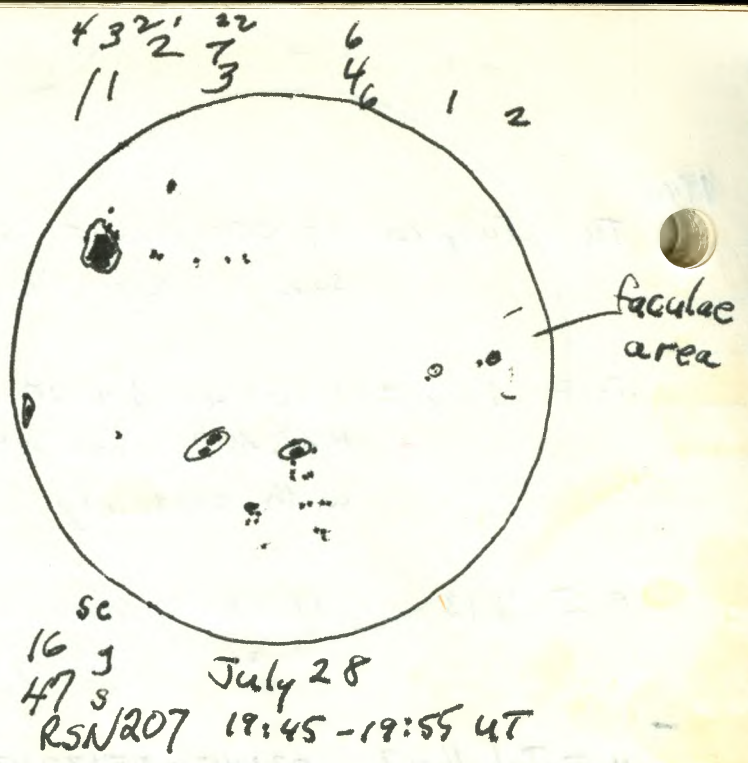 4 3 2 1 22 6
2 7 4
1 1 3 6 1 2
faculae
area
sc
16 g
47 s
July 28
RSN 207 19:45 - 19:55 UT